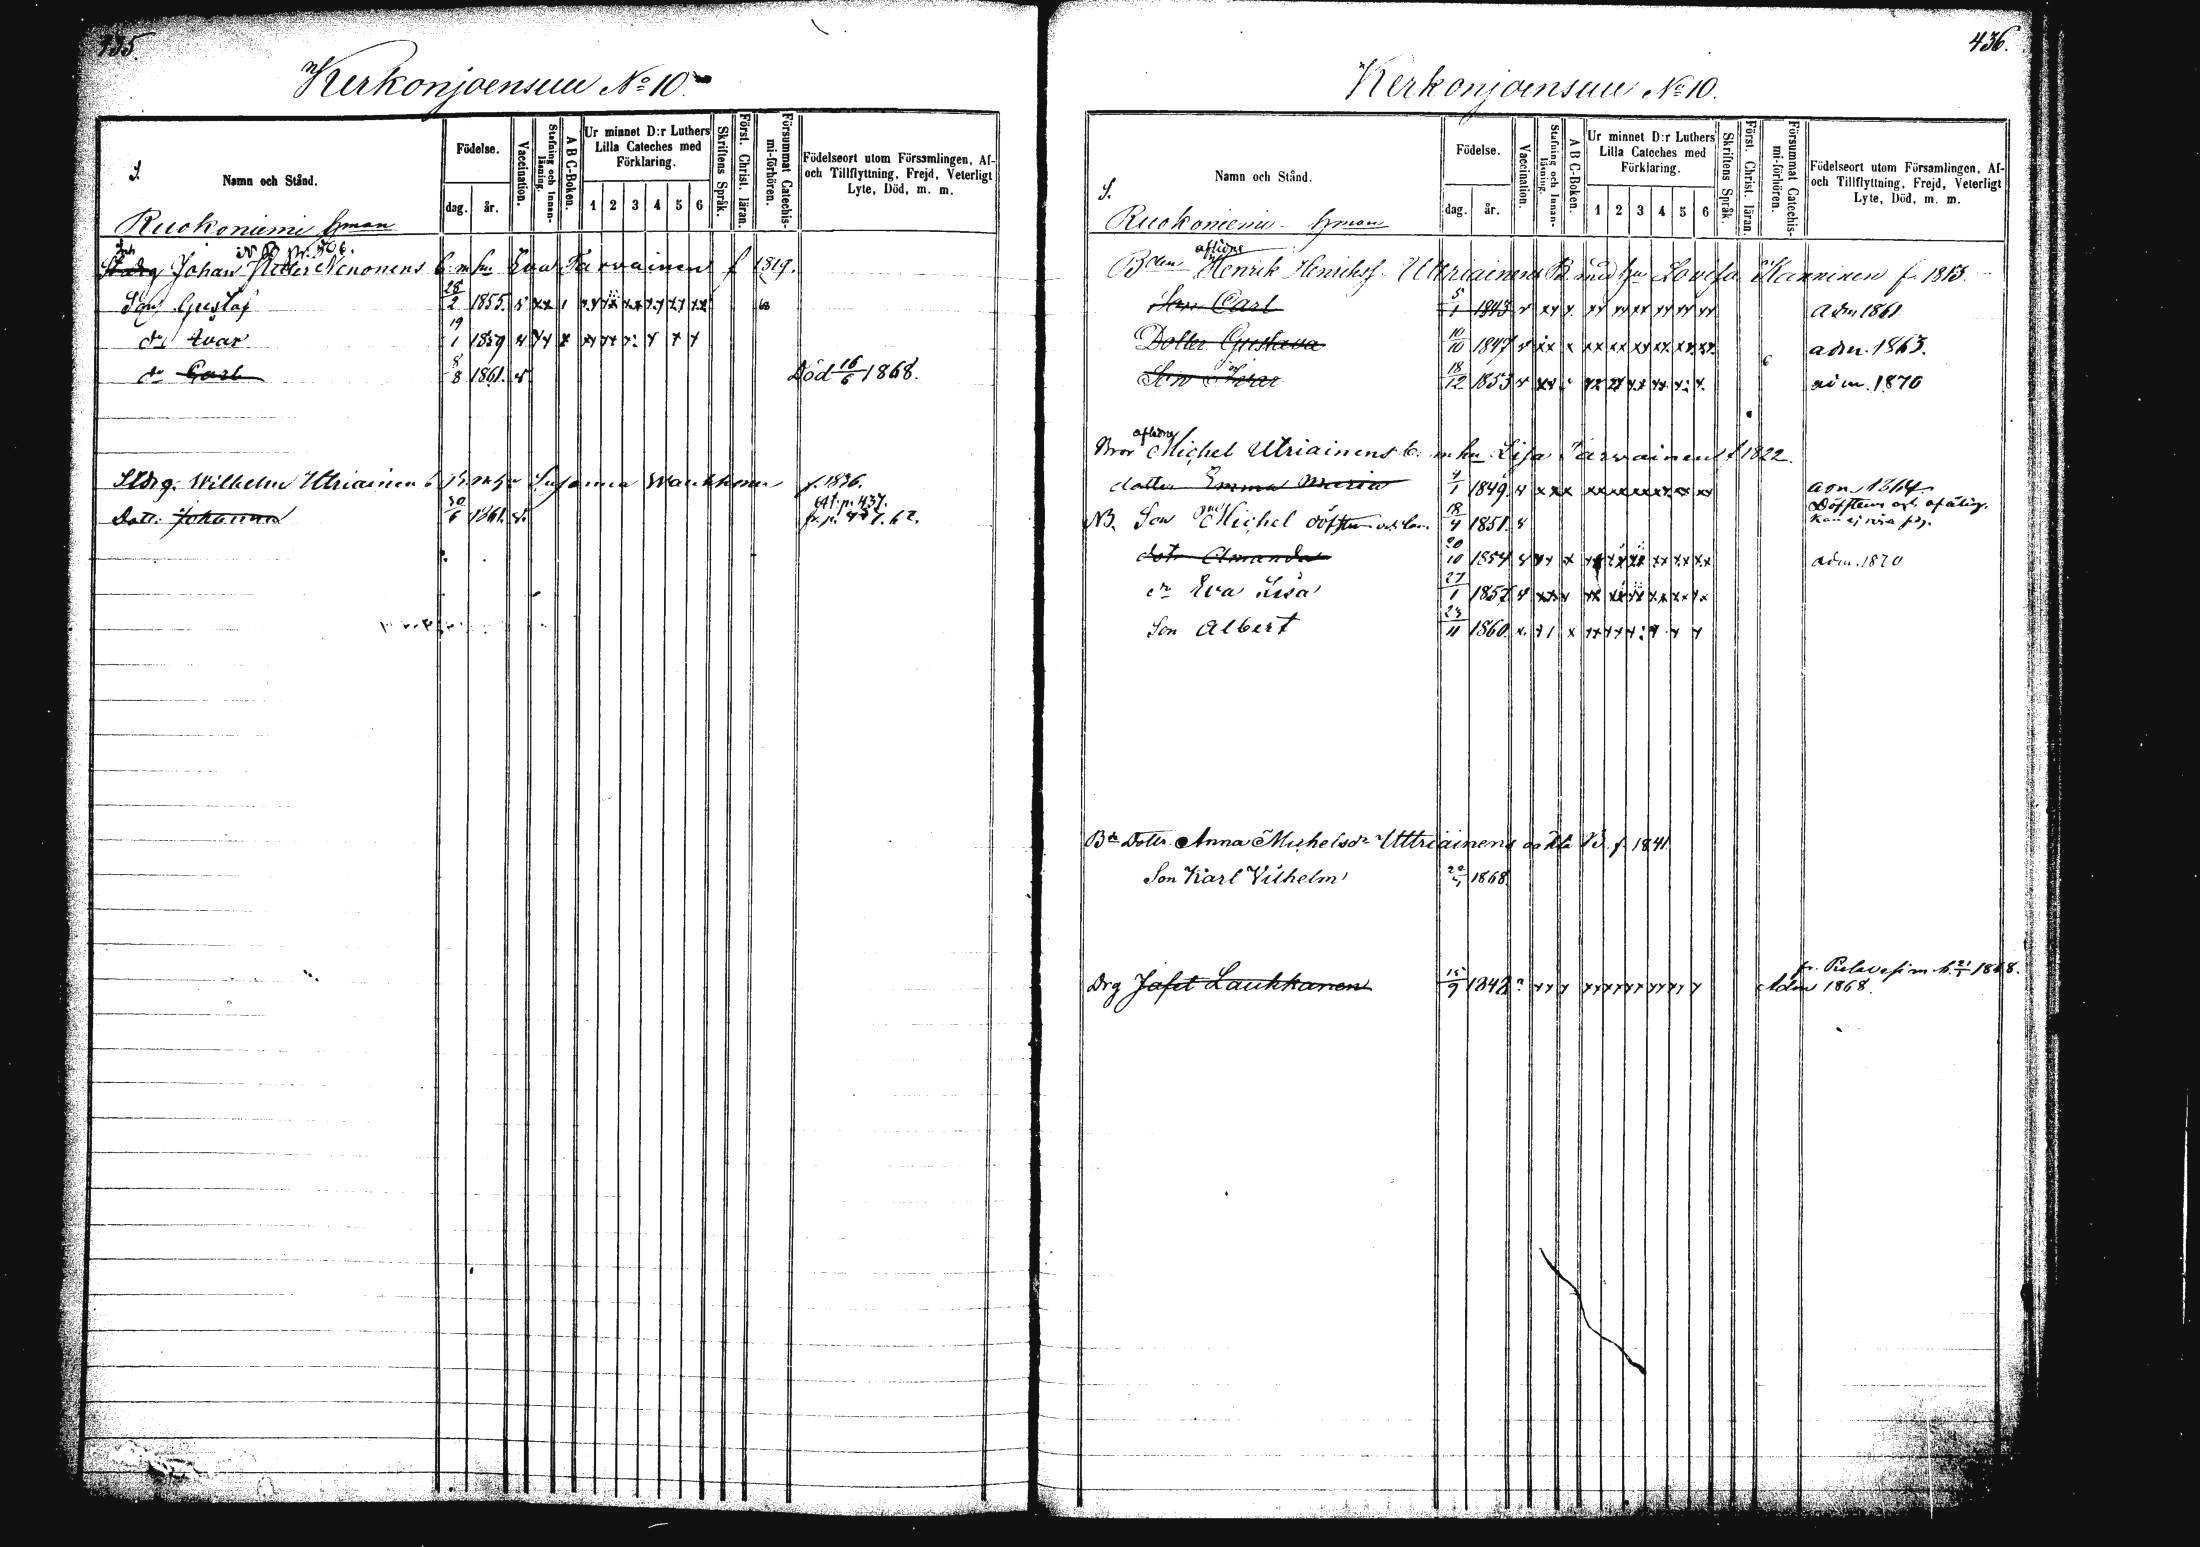 435.
Kerkonjoensuu No 10.
Namn och Stånd.
Födelse.
dag. år.
Vaccination.
Stafning och Innanläsning.
A B C-Boken.
Ur minnet D:r Luthers Lilla Cateches med Förklaring.
1 2 3 4 5 6
Skriftens Språk.
Först. Christ. läran.
Försummat Catechismi-förhören.
Födelseort utom Församlingen, Af- och Tillflyttning, Frejd, Veterligt Lyte, Död, m. m.
Ruokoniemi Hman
Johan Peter Nenonens b. m hu Eva Tarvainen f 1819.
Son Gustaf 2 1855.
do Ivar 19/1 1859
do Carl 8/8 1861. Död 16/6 1868.
Stdrg. Wilhelm Utriainen Susanna Waukkonen f. 1836.
Dott. Johanna 30/6 1861. p. 437.
436.
Kerkonjoensuu No 10.
Namn och Stånd.
Födelse.
dag. år.
Vaccination.
Stafning och Innanläsning.
A B C-Boken.
Ur minnet D:r Luthers Lilla Cateches med Förklaring.
1 2 3 4 5 6
Skriftens Språk.
Först. Christ. läran.
Försummat Catechismi-förhören.
Födelseort utom Församlingen, Af- och Tillflyttning, Frejd, Veterligt Lyte, Död, m. m.
Ruokoniemi Hman
Bden aflidne Henrik Henrikss Uttriainens B med hu Lovisa Kanninen f. 1813.
Son Carl 5/1 1843 adm 1861
Dotter Gustava 10/10 1847 adm. 1863.
Son 18/12 1853 adm. 1870
Bror aflidne Michel Utriainens b. m hu Lisa Tarvainen f 1822.
dotter Emma Maria 1 1849. adm 1864
NB. Son Michel döfstum 18/4 1851. Döfstum
dotr Amanda 20/10 1854 adm. 1870
do Eva Lisa 27/1 1857
Son Albert 11 1860
Bde Dotter Anna Michelsdr Uttriainens oäkta B. f. 1841.
Son Karl Vilhelm 1868
Drg Jafet Laukkanen 15/9 1842 Adm 1868.